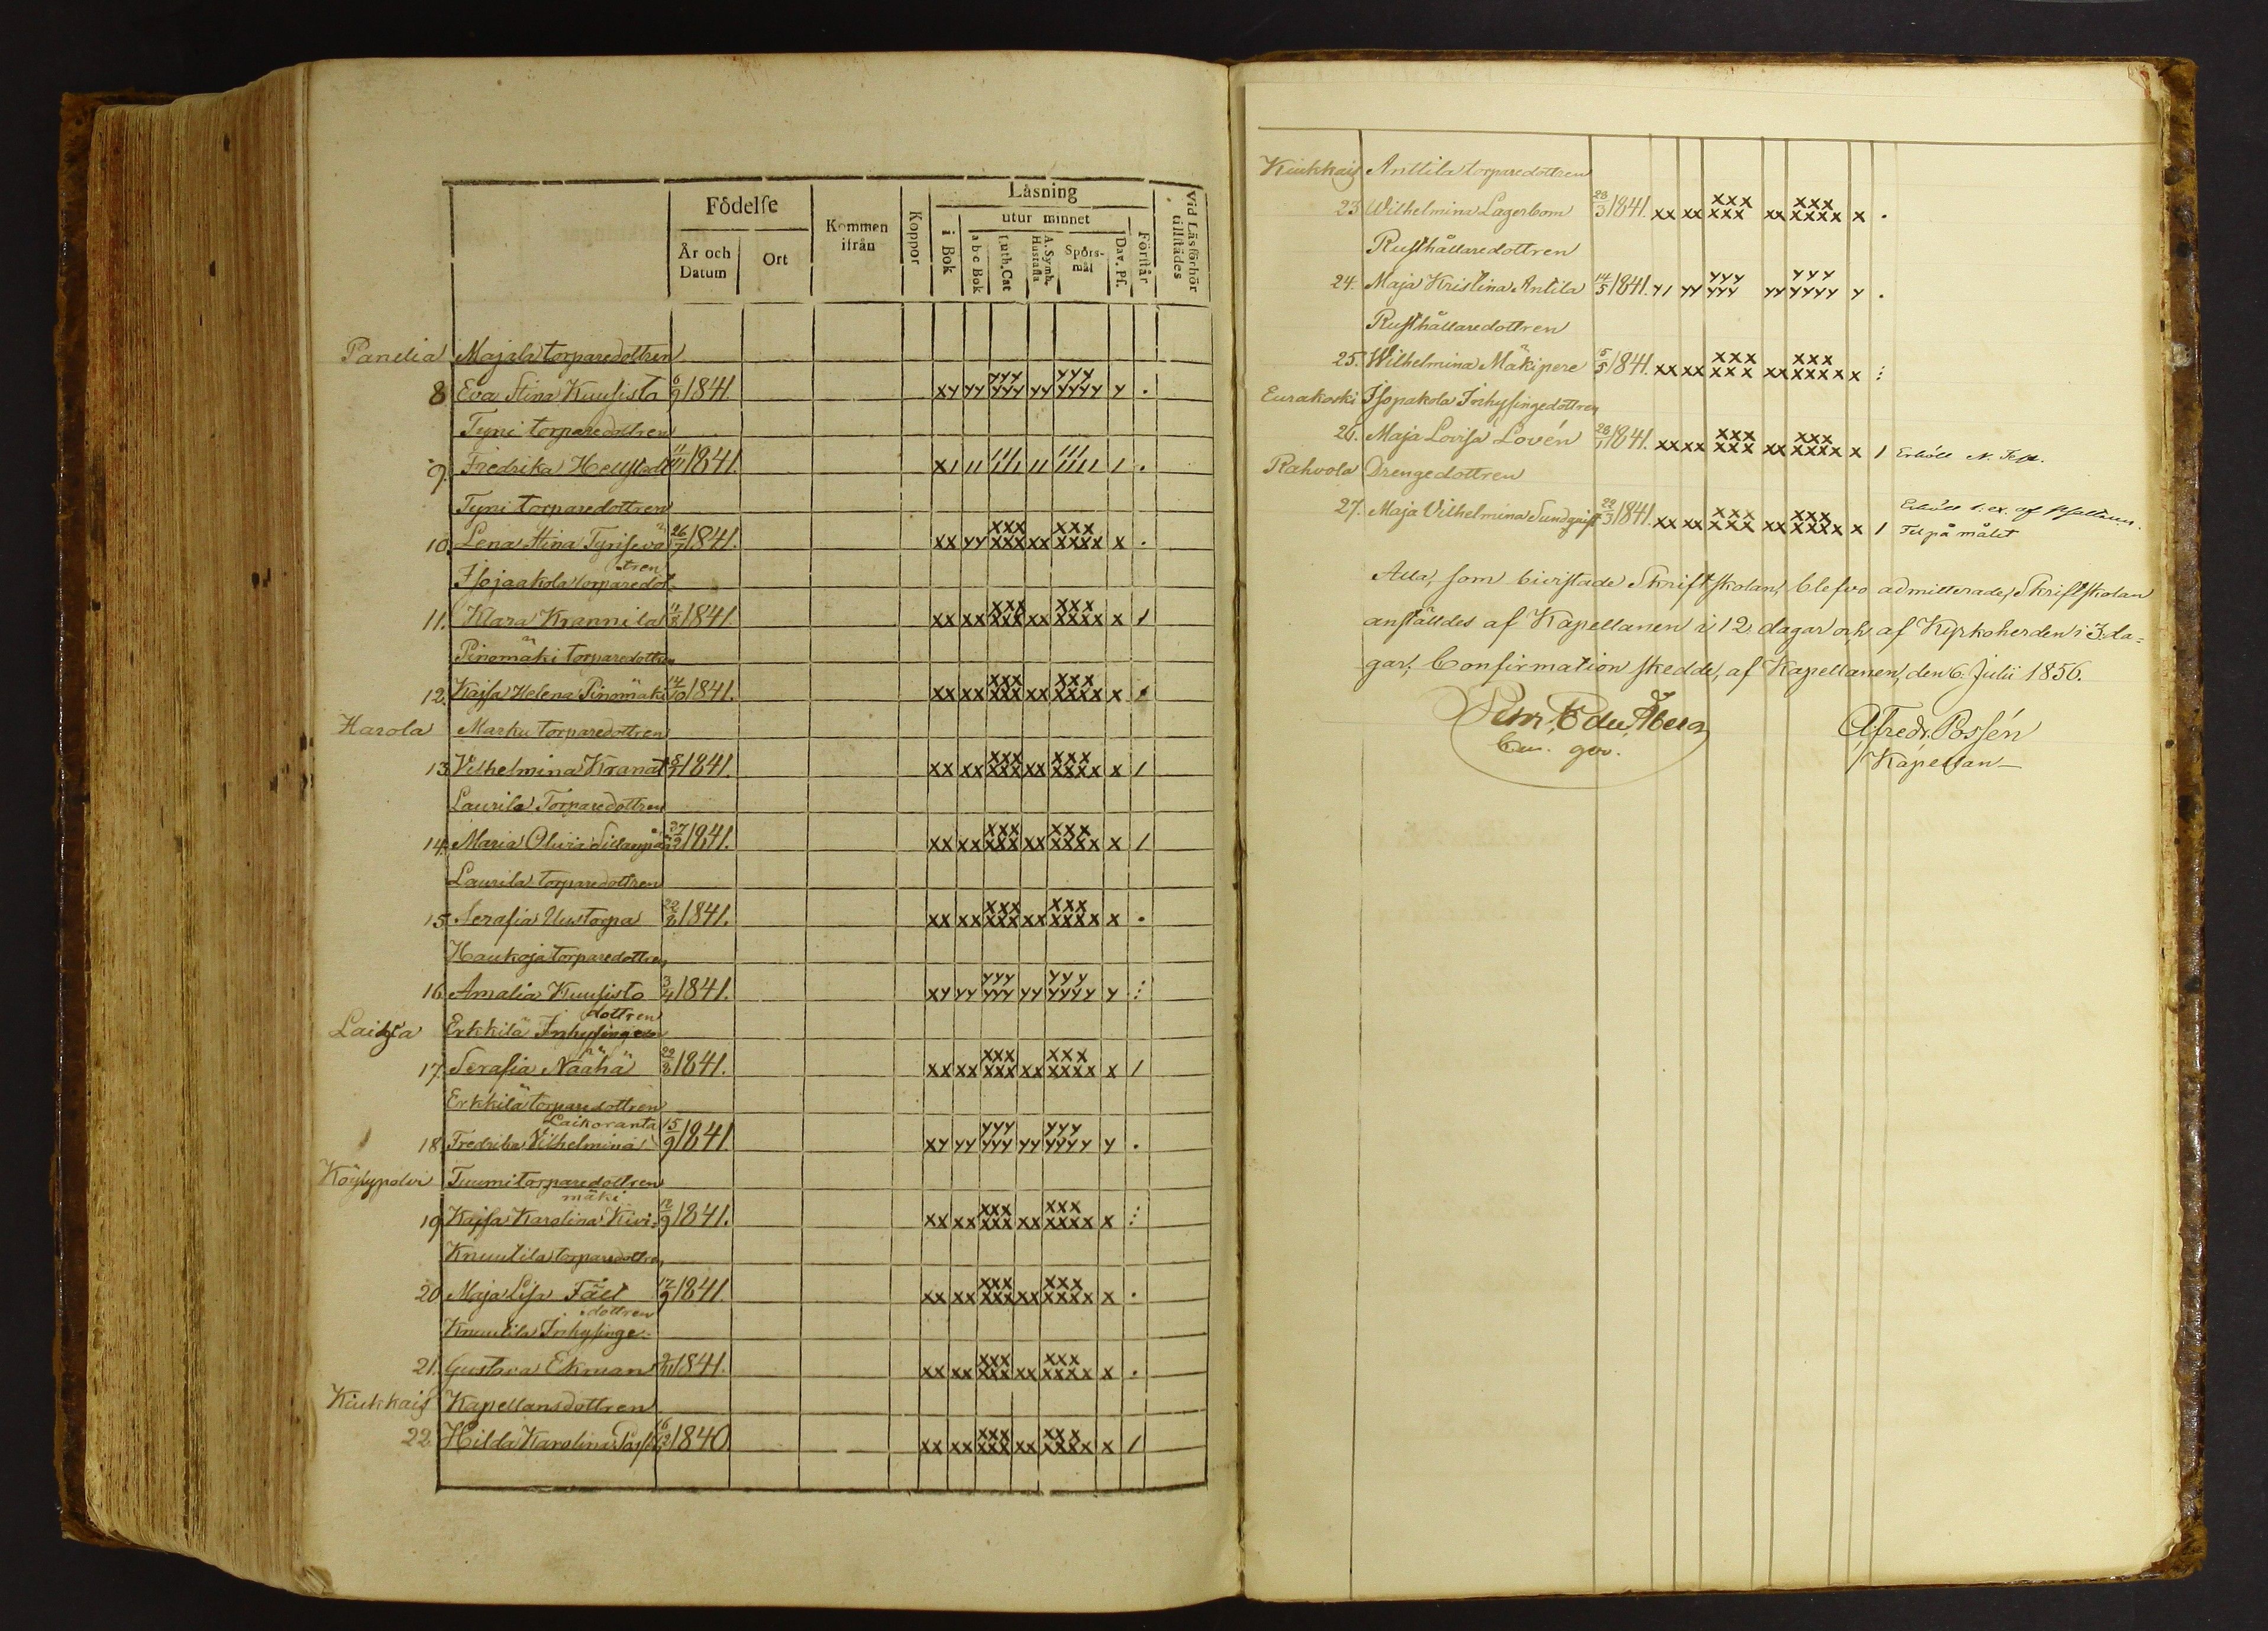 Födelſe
Kommen ifrån
Koppor
Läsning
Vid Läsförhör tillſtädes
År och Datum
Ort
i Bok
utur minnet
a b c Bok
Luth. Cat
A. Symb. Hustafla
Spörs-mål
Dav. Pſ.
Förſtår
Panelia Majala torparedottren
8 Eva Stina Kuusisto 6/9 1841. xy yy yyy yyy yy yyy yyyy y .
Tyni torparedottren
9. Fredrika 11/11 1841. x1 11 111 111 11 111 1111 1 .
Tyni torparedottren
10. Lena Stina 26/7 1841. xx yy xxx xxx xx xxx xxxx x .
Isojaakola torparedot-tren
11. Klara Krannila 4/8 1841. xx xx xxx xxx xx xxx xxxx x /
Pinomäki torparedottren
12. Kajsa Helena Pinomäki 14/10 1841. xx xx xxx xxx xx xxx xxxx x
Harola Marku torparedottren
13. Vilhelmina Kranat 5/7 1841. xx xx xxx xxx xx xxx xxxx x /
Laurila Torparedottren
14. Maria Olivia 27/3 1841. xx xx xxx xxx xx xxx xxxx x /
Laurila torparedottren
15. Serafia Uustorpa 22/8 1841. xx xx xxx xxx xx xxx xxxx x .
Haukoja torparedottren
16. Amalia Kuusisto 3/4 1841. xy yy yyy yyy yy yyy yyyy y
Erkkilä Inhysinge dottren
17. Serafia Näähä 22/8 1841. xx xx xxx xxx xx xxx xxxx x /
Erkkilä torparedottren
18. Fredrika Vilhelmina Laikoranta 15/9 1841. xy yy yyy yyy yy yyy yyyy y .
Köylypolvi Tuomi torparedottren
19. Kajsa Karolina Kivi-mäki 12/9 1841. xx xx xxx xxx xx xxx xxxx x
Knuutila torparedottren
20. Maja Lisa Fält 17/9 1841. xx xx xxx xxx xx xxx xxxx x .
Knuutila Inhysinge-dottren
21. Gustava Ekman 1841. xx xx xxx xxx xx xxx xxxx x .
Kiukkais Kapellansdottren
22. Hilda Karolina 16/12 1840. xx xx xxx xxx xx xxx xxxx x /
Kiukkais Anttila torparedottren
23. Wilhelmina Lagerbom 28/3 1841. xx xx xxx xxx xx xxx xxxx x .
Rusthållaredottren
24. Maja Kristina Antila 14/5 1841. y1 yy yyy yyy yy yyy yyyy y .
Rusthållaredottren
25. Wilhelmina Mäkipere 5/5 1841. xx xx xxx xxx xx xxx xxxx x
Eurakoski Isopakola Inhysingedottren
26. Maja Lovisa Lovén 28/1 1841. xx xx xxx xxx xx xxx xxxx x 1 Erhöll N. Test.
Rahvola Drengedottren
27. Maja Vilhelmina Sundqvist 22/3 1841. xx xx xxx xxx xx xxx xxxx x 1 Erhöll 1. ex. af
Fel på målet
Alla, som bivistade Skriftskolan, blefvo admitterade, Skriftskolan
anställdes af Kapellanen i 12 dagar och af Kyrkoherden i 3 da=
gar. Confirmation skedde, af Kapellanen, den 6 Julii 1856.
Afredr. Possén
Kapellan